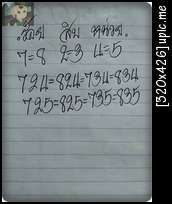 ร้อย สิบ หน่วย
7=8 2=3 4=5
724=824=734=834
725=825=735=835
[520x426] upic.me